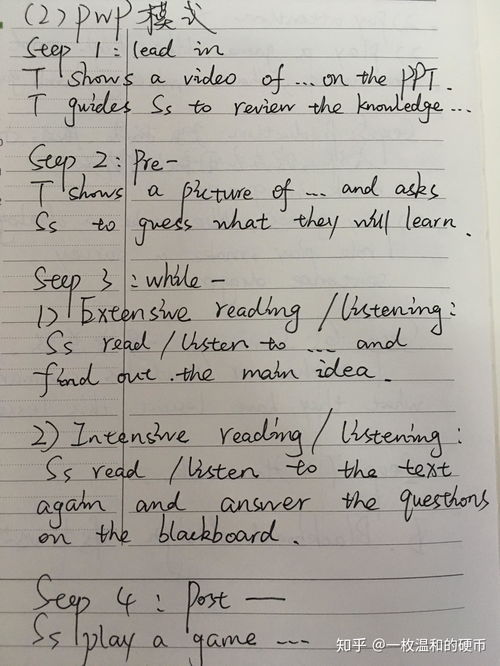 (2) PWP 模式
Step 1: lead in
T shows a video of ... on the PPT.
T guides Ss to review the knowledge ...
Step 2: Pre-
T shows a picture of ... and asks
Ss to guess what they will learn.
Step 3 : while -
1) Extensive reading / listening :
Ss read / listen to ... and
find out the main idea.
2) Intensive reading / listening :
Ss read / listen to the text
again and answer the questions
on the blackboard.
Step 4 : Post —
Ss play a game ...
知乎 @一枚温和的硬币